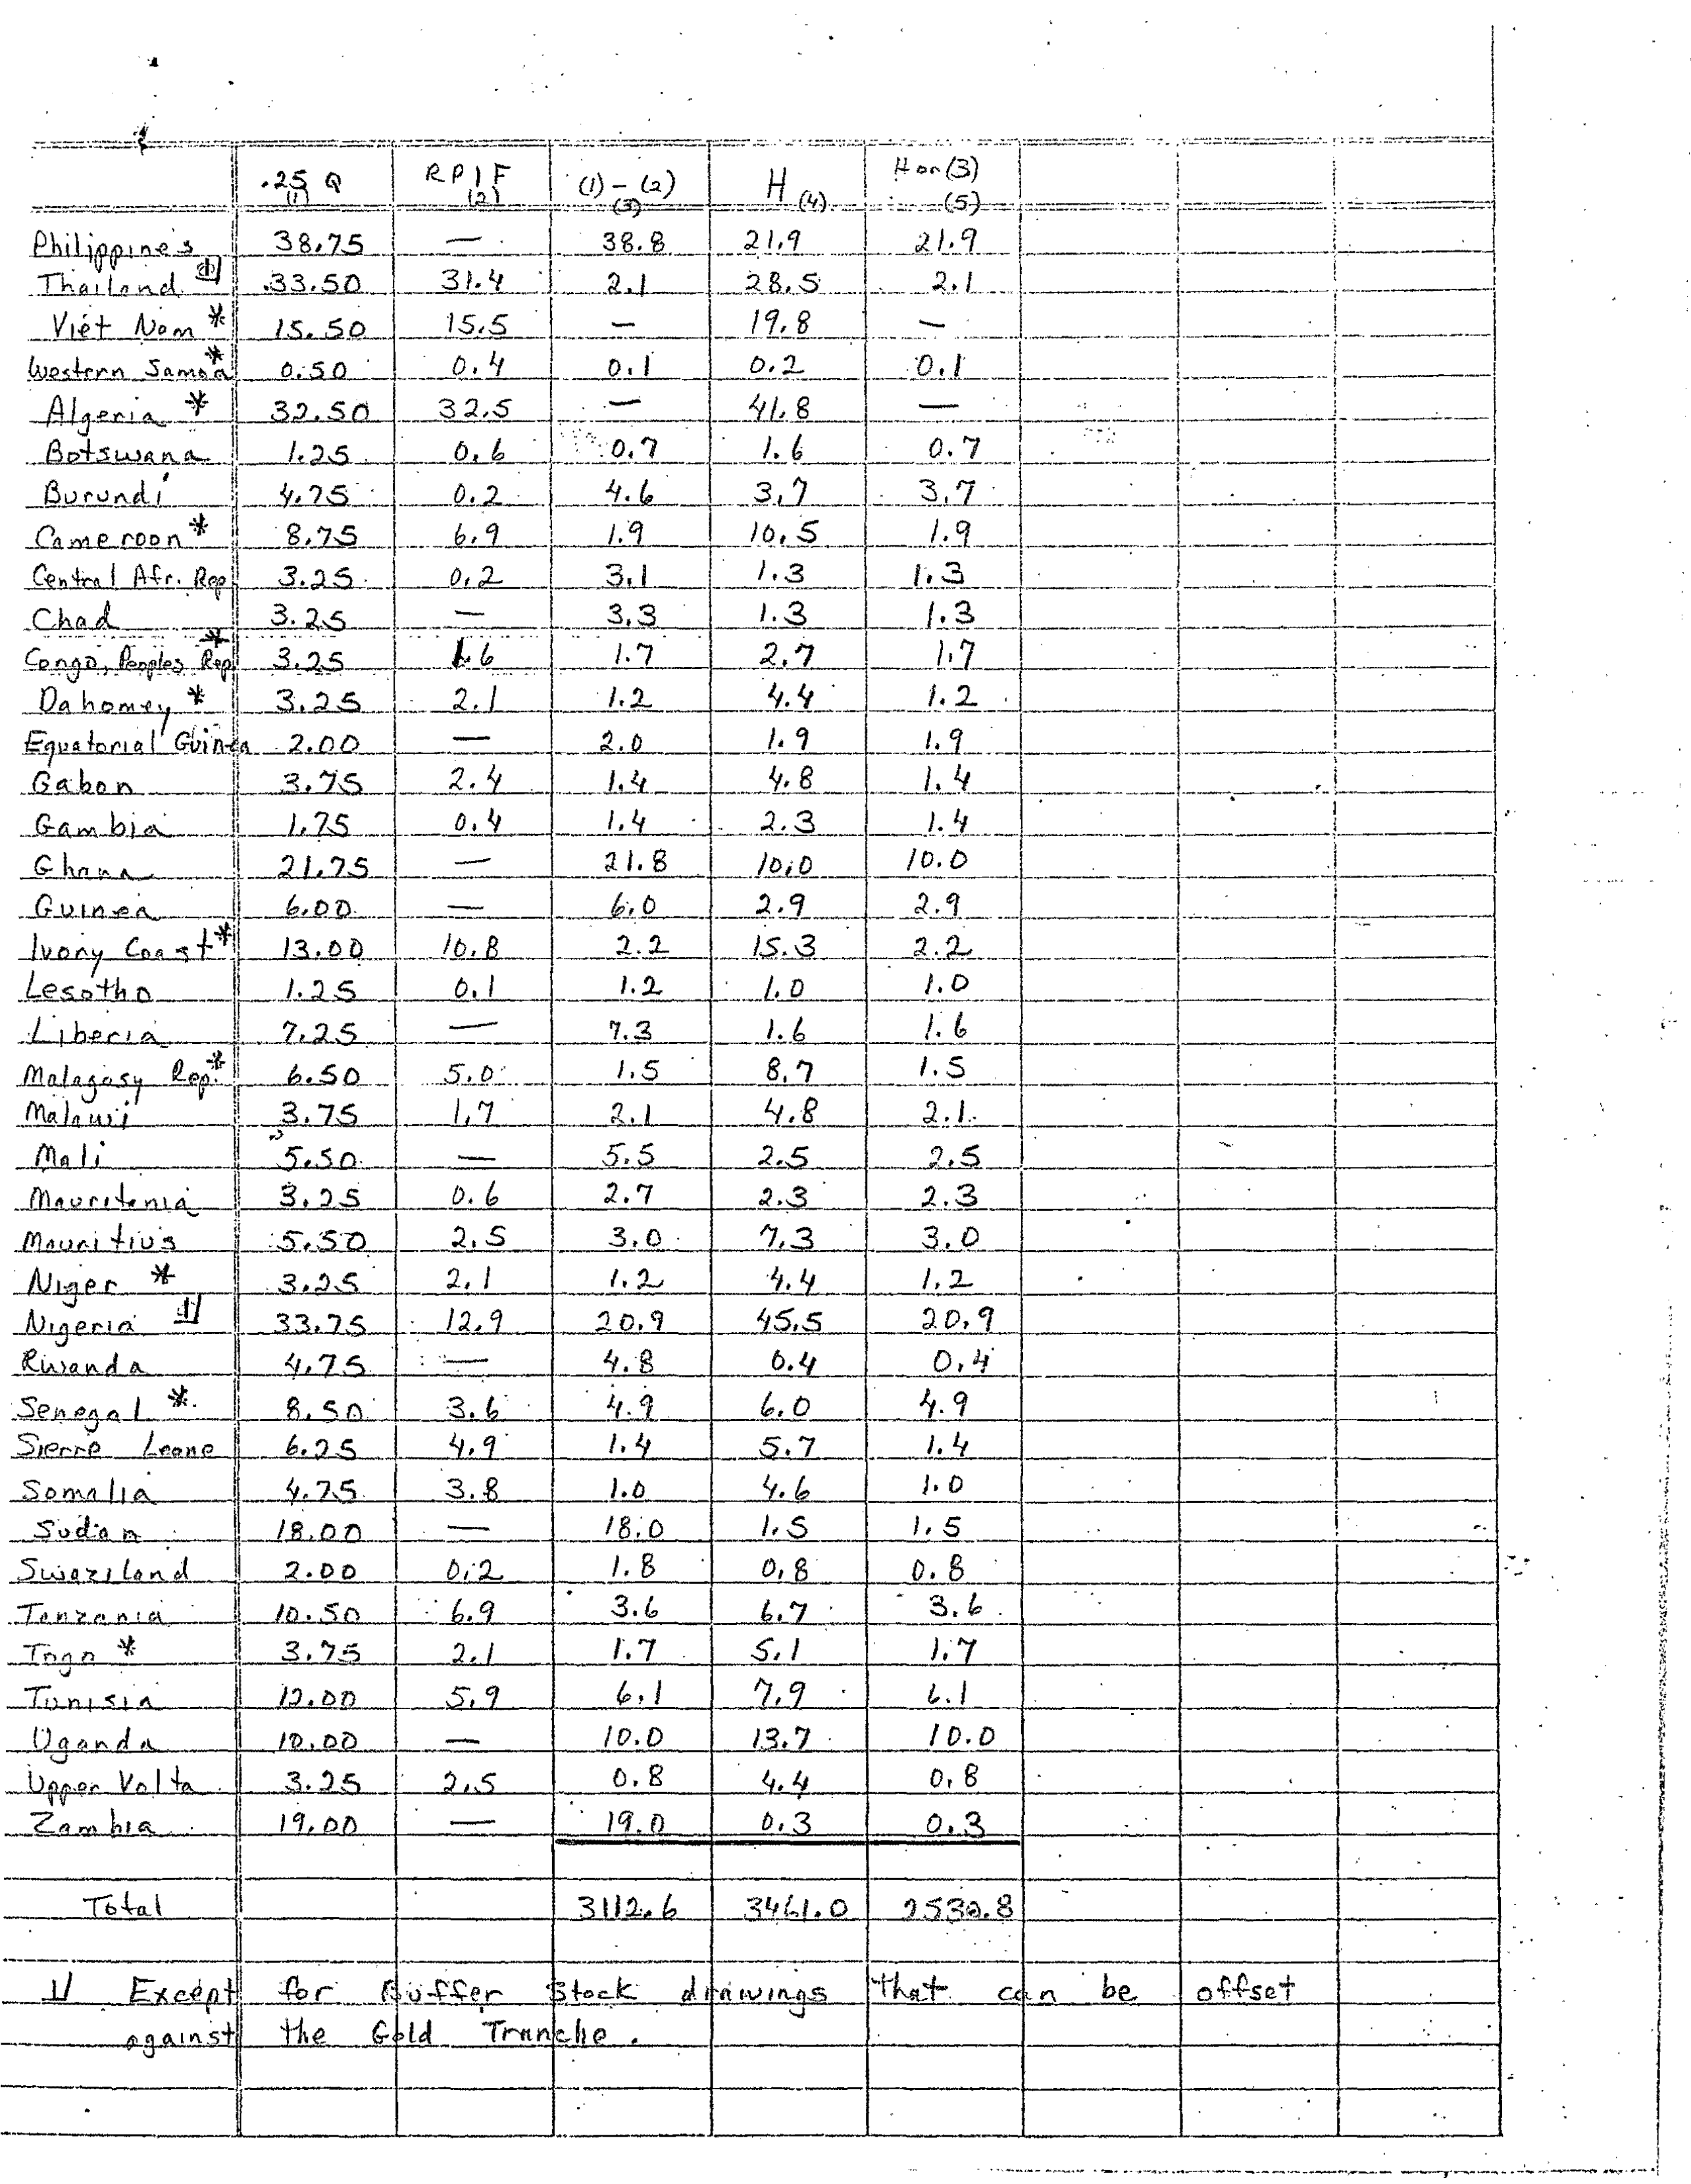 .25 Q RPIF (1) - (2) H (4) H or (3)
(1) (2) (3) (5)
Philippines 38.75 — 38.8 21.9 21.9
Thailand 1/ 33.50 31.4 2.1 28.5 2.1
Viét Nam * 15.50 15.5 — 19.8 —
Western Samoa * 0.50 0.4 0.1 0.2 0.1
Algeria * 32.50 32.5 — 41.8 —
Botswana 1.25 0.6 0.7 1.6 0.7
Burundi 4.75 0.2 4.6 3.7 3.7
Cameroon * 8.75 6.9 1.9 10.5 1.9
Central Afr. Rep 3.25 0.2 3.1 1.3 1.3
Chad 3.25 — 3.3 1.3 1.3
Congo, Peoples Rep * 3.25 1.6 1.7 2.7 1.7
Dahomey * 3.25 2.1 1.2 4.4 1.2
Equatorial Guinea 2.00 — 2.0 1.9 1.9
Gabon 3.75 2.4 1.4 4.8 1.4
Gambia 1.75 0.4 1.4 2.3 1.4
Ghana 21.75 — 21.8 10.0 10.0
Guinea 6.00 — 6.0 2.9 2.9
Ivory Coast * 13.00 10.8 2.2 15.3 2.2
Lesotho 1.25 0.1 1.2 1.0 1.0
Liberia 7.25 — 7.3 1.6 1.6
Malagasy Rep. * 6.50 5.0 1.5 8.7 1.5
Malawi 3.75 1.7 2.1 4.8 2.1
Mali 5.50 — 5.5 2.5 2.5
Mauritania 3.25 0.6 2.7 2.3 2.3
Mauritius 5.50 2.5 3.0 7.3 3.0
Niger * 3.25 2.1 1.2 4.4 1.2
Nigeria 1/ 33.75 12.9 20.9 45.5 20.9
Rwanda 4.75 — 4.8 0.4 0.4
Senegal * 8.50 3.6 4.9 6.0 4.9
Sierre Leone 6.25 4.9 1.4 5.7 1.4
Somalia 4.75 3.8 1.0 4.6 1.0
Sudan 18.00 — 18.0 1.5 1.5
Swaziland 2.00 0.2 1.8 0.8 0.8
Tanzania 10.50 6.9 3.6 6.7 3.6
Togo * 3.75 2.1 1.7 5.1 1.7
Tunisia 12.00 5.9 6.1 7.9 6.1
Uganda 10.00 — 10.0 13.7 10.0
Upper Volta 3.25 2.5 0.8 4.4 0.8
Zambia 19.00 — 19.0 0.3 0.3
Total 3112.6 3461.0 2530.8
1/ Except for Buffer Stock drawings that can be offset
against the Gold Tranche.